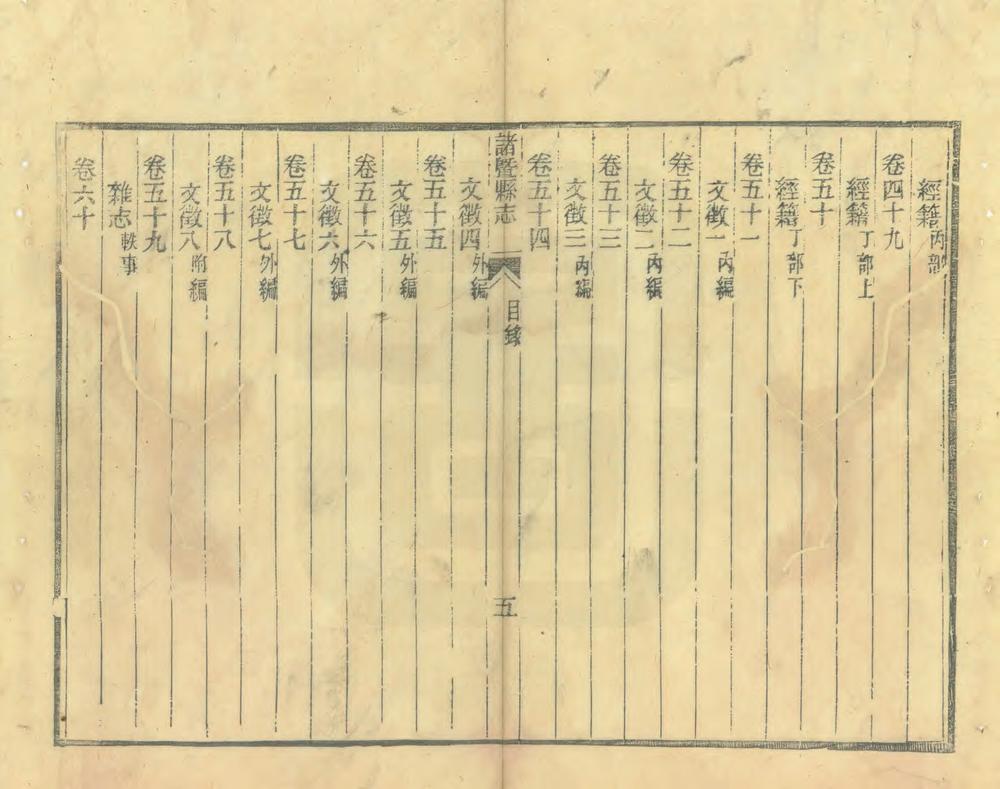 經籍丙部
卷四十九
經籍丁部上
卷五十
經籍丁部下
卷五十一
文徵一內編
卷五十二
文徵二內編
卷五十三
文徵三內編
卷五十四
諸暨縣志 目錄 五
文徵四外編
卷五十五
文徵五外編
卷五十六
文徵六外編
卷五十七
文徵七外編
卷五十八
文徵八附編
卷五十九
雜志軼事
卷六十